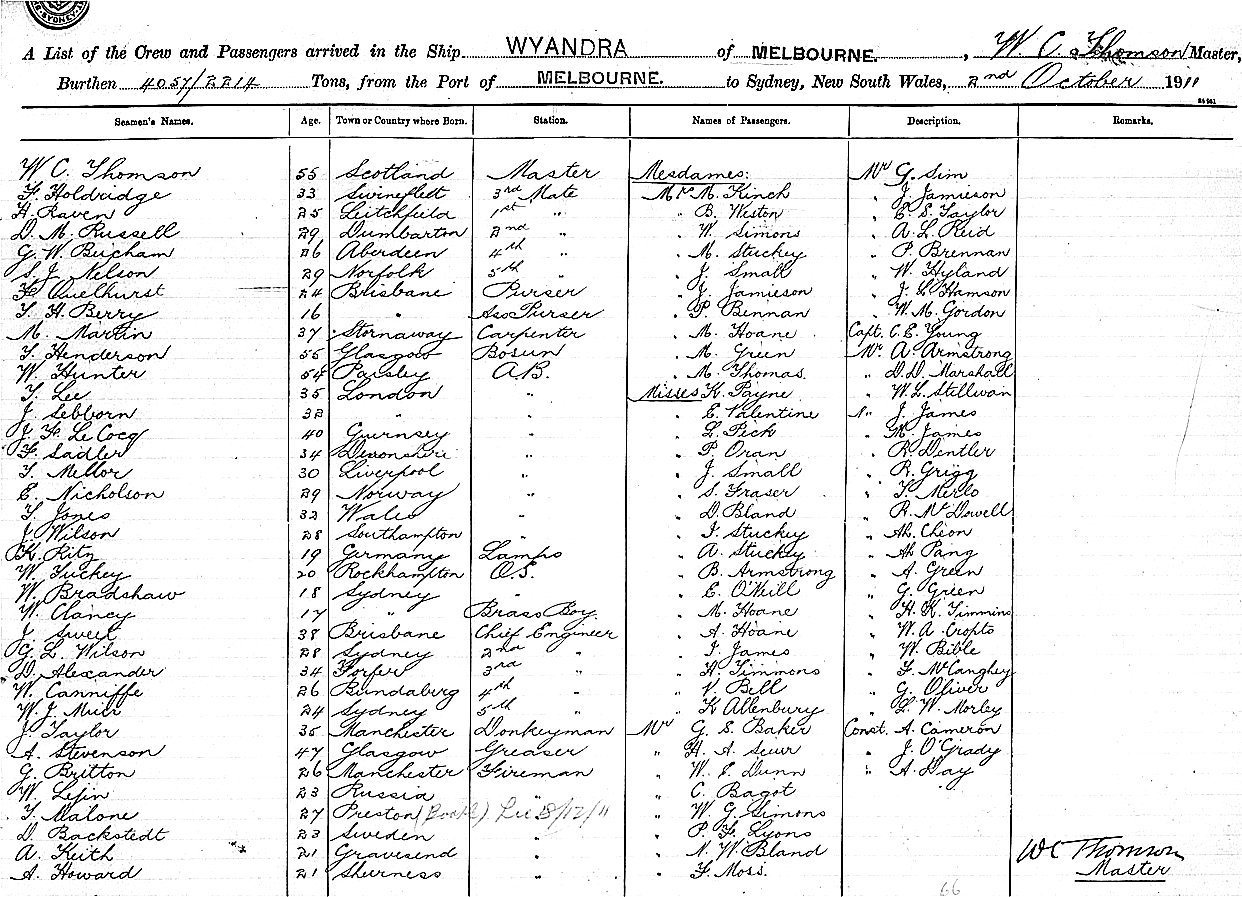 SYDNEY
A List of the Crew and Passengers arrived in the Ship WYANDRA of MELBOURNE., W. C. Thomson Master,
Burthen 4057/2214 Tons, from the Port of MELBOURNE. to Sydney, New South Wales, 2nd October 1911
Seamen's Names. Age. Town or Country where Born. Station. Names of Passengers. Description. Remarks.
W C. Thomson 55 Scotland Master Mesdames: Mr G. Sim
F. Holdridge 33 Swineflett 3rd Mate Mrs M. Kinch " J. Jamieson
H. Raven 25 Leitchfield 1st " " B. Weston " E. S. Taylor
D. M. Russell 29 Dumbarton 2nd " " W. Simons " A. L. Reid
G. W. Beecham 26 Aberdeen 4th " " M. Stuckey " P. Brennan
S. J. Nelson 29 Norfolk 5th " " J. Small " W. Hyland
F. Quelhurst 24 Brisbane Purser " J. Jamieson " J. L. Hamson
T. H. Berry 16 " Ass Purser " P. Bennan " W. M. Gordon
M. Martin 37 Stornaway Carpenter " M. Hoane Capt. C. E. Young
T. Henderson 55 Glasgow Bosun " M. Green Mr. A. Armstrong
W. Hunter 54 Paisley A.B. " M. Thomas. " D. D. Marshall
T. Lee 35 London " Misses K. Payne " W. L. Stillwan
J. Sebborn 32 " " " E. Valentine " J. James
J. F. Le Cocq 40 Guernsey " " L. Peck " M. James
F. Sadler 34 Devonshire " " P. Oran " R. Dentler
T. Mellor 30 Liverpool " " J. Small " R. Grigg
E. Nicholson 29 Norway " " S. Fraser " T. Merlo
T. Jones 32 Wales " " D. Bland " R. McDowell
J. Wilson 28 Southampton " " I. Stuckey " Ah. Cheon
K. Ritz 19 Germany Lamps " A. Stuckey " Ah Pang
W. Tuckey 20 Rockhampton O.S. " B. Armstrong " A. Green
W. Bradshaw 18 Sydney " " E. O'Neill " G. Green
W. Clancy 17 " Brass Boy " M. Hoane " H. K. Timmins
J. Sweet 38 Brisbane Chief Engineer " A. Hoane " W. A. Cropts
G. L. Wilson 28 Sydney 2nd " " I. James " W. Bible
D. Alexander 34 Forfer 3rd " " H. Timmons " F. McCanghey
W. Canniffe 26 Bundaberg 4th " " V. Bell " G. Oliver
W. J. Muir 24 Sydney 5th " " K Allenbury " L. W. Morley
J. Taylor 35 Manchester Donkeyman Mr G. S. Baker Const. A. Cameron
A. Stevenson 47 Glasgow Greaser " H. A. Seur " J. O'Grady
G. Britton 26 Manchester Fireman " W. E. Dunn " A. Day
W. Lepin 23 Russia " " C. Bagot
T. Malone 27 Preston 8/12/11 " W. G. Simons
D. Backstedt 23 Sweden " " P. F. Lyons
A. Keith 21 Gravesend " " N. W. Bland WC Thomson
A. Howard 21 Sheerness " " F. Moss. Master
66